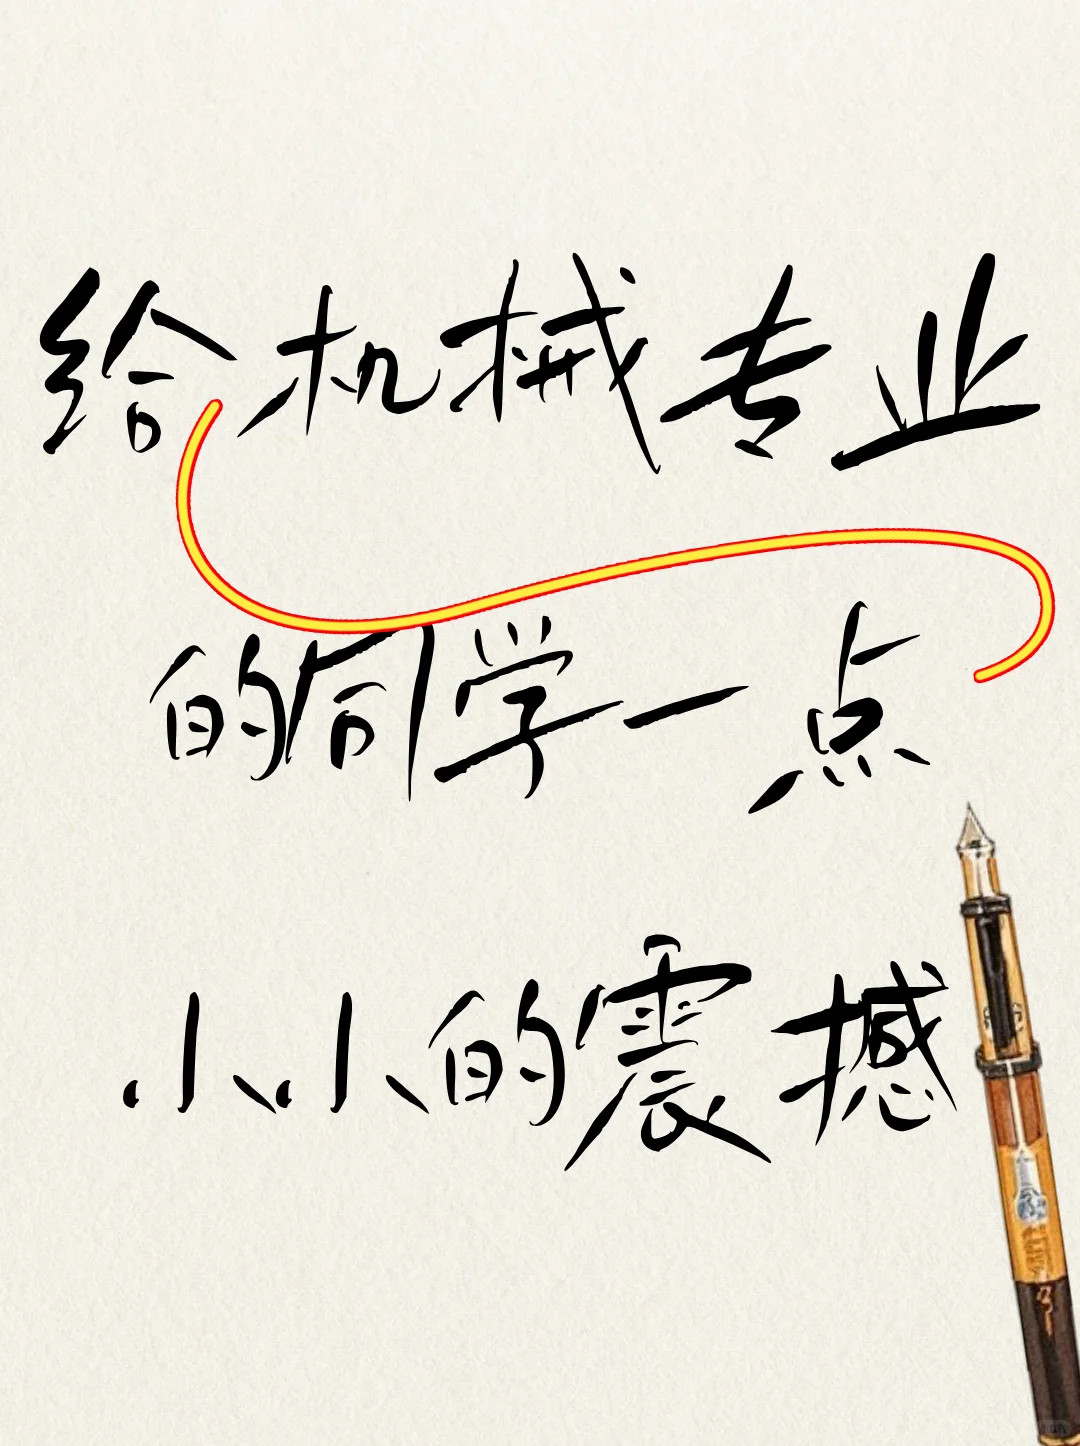 给机械专业
的同学一点
小小的震撼